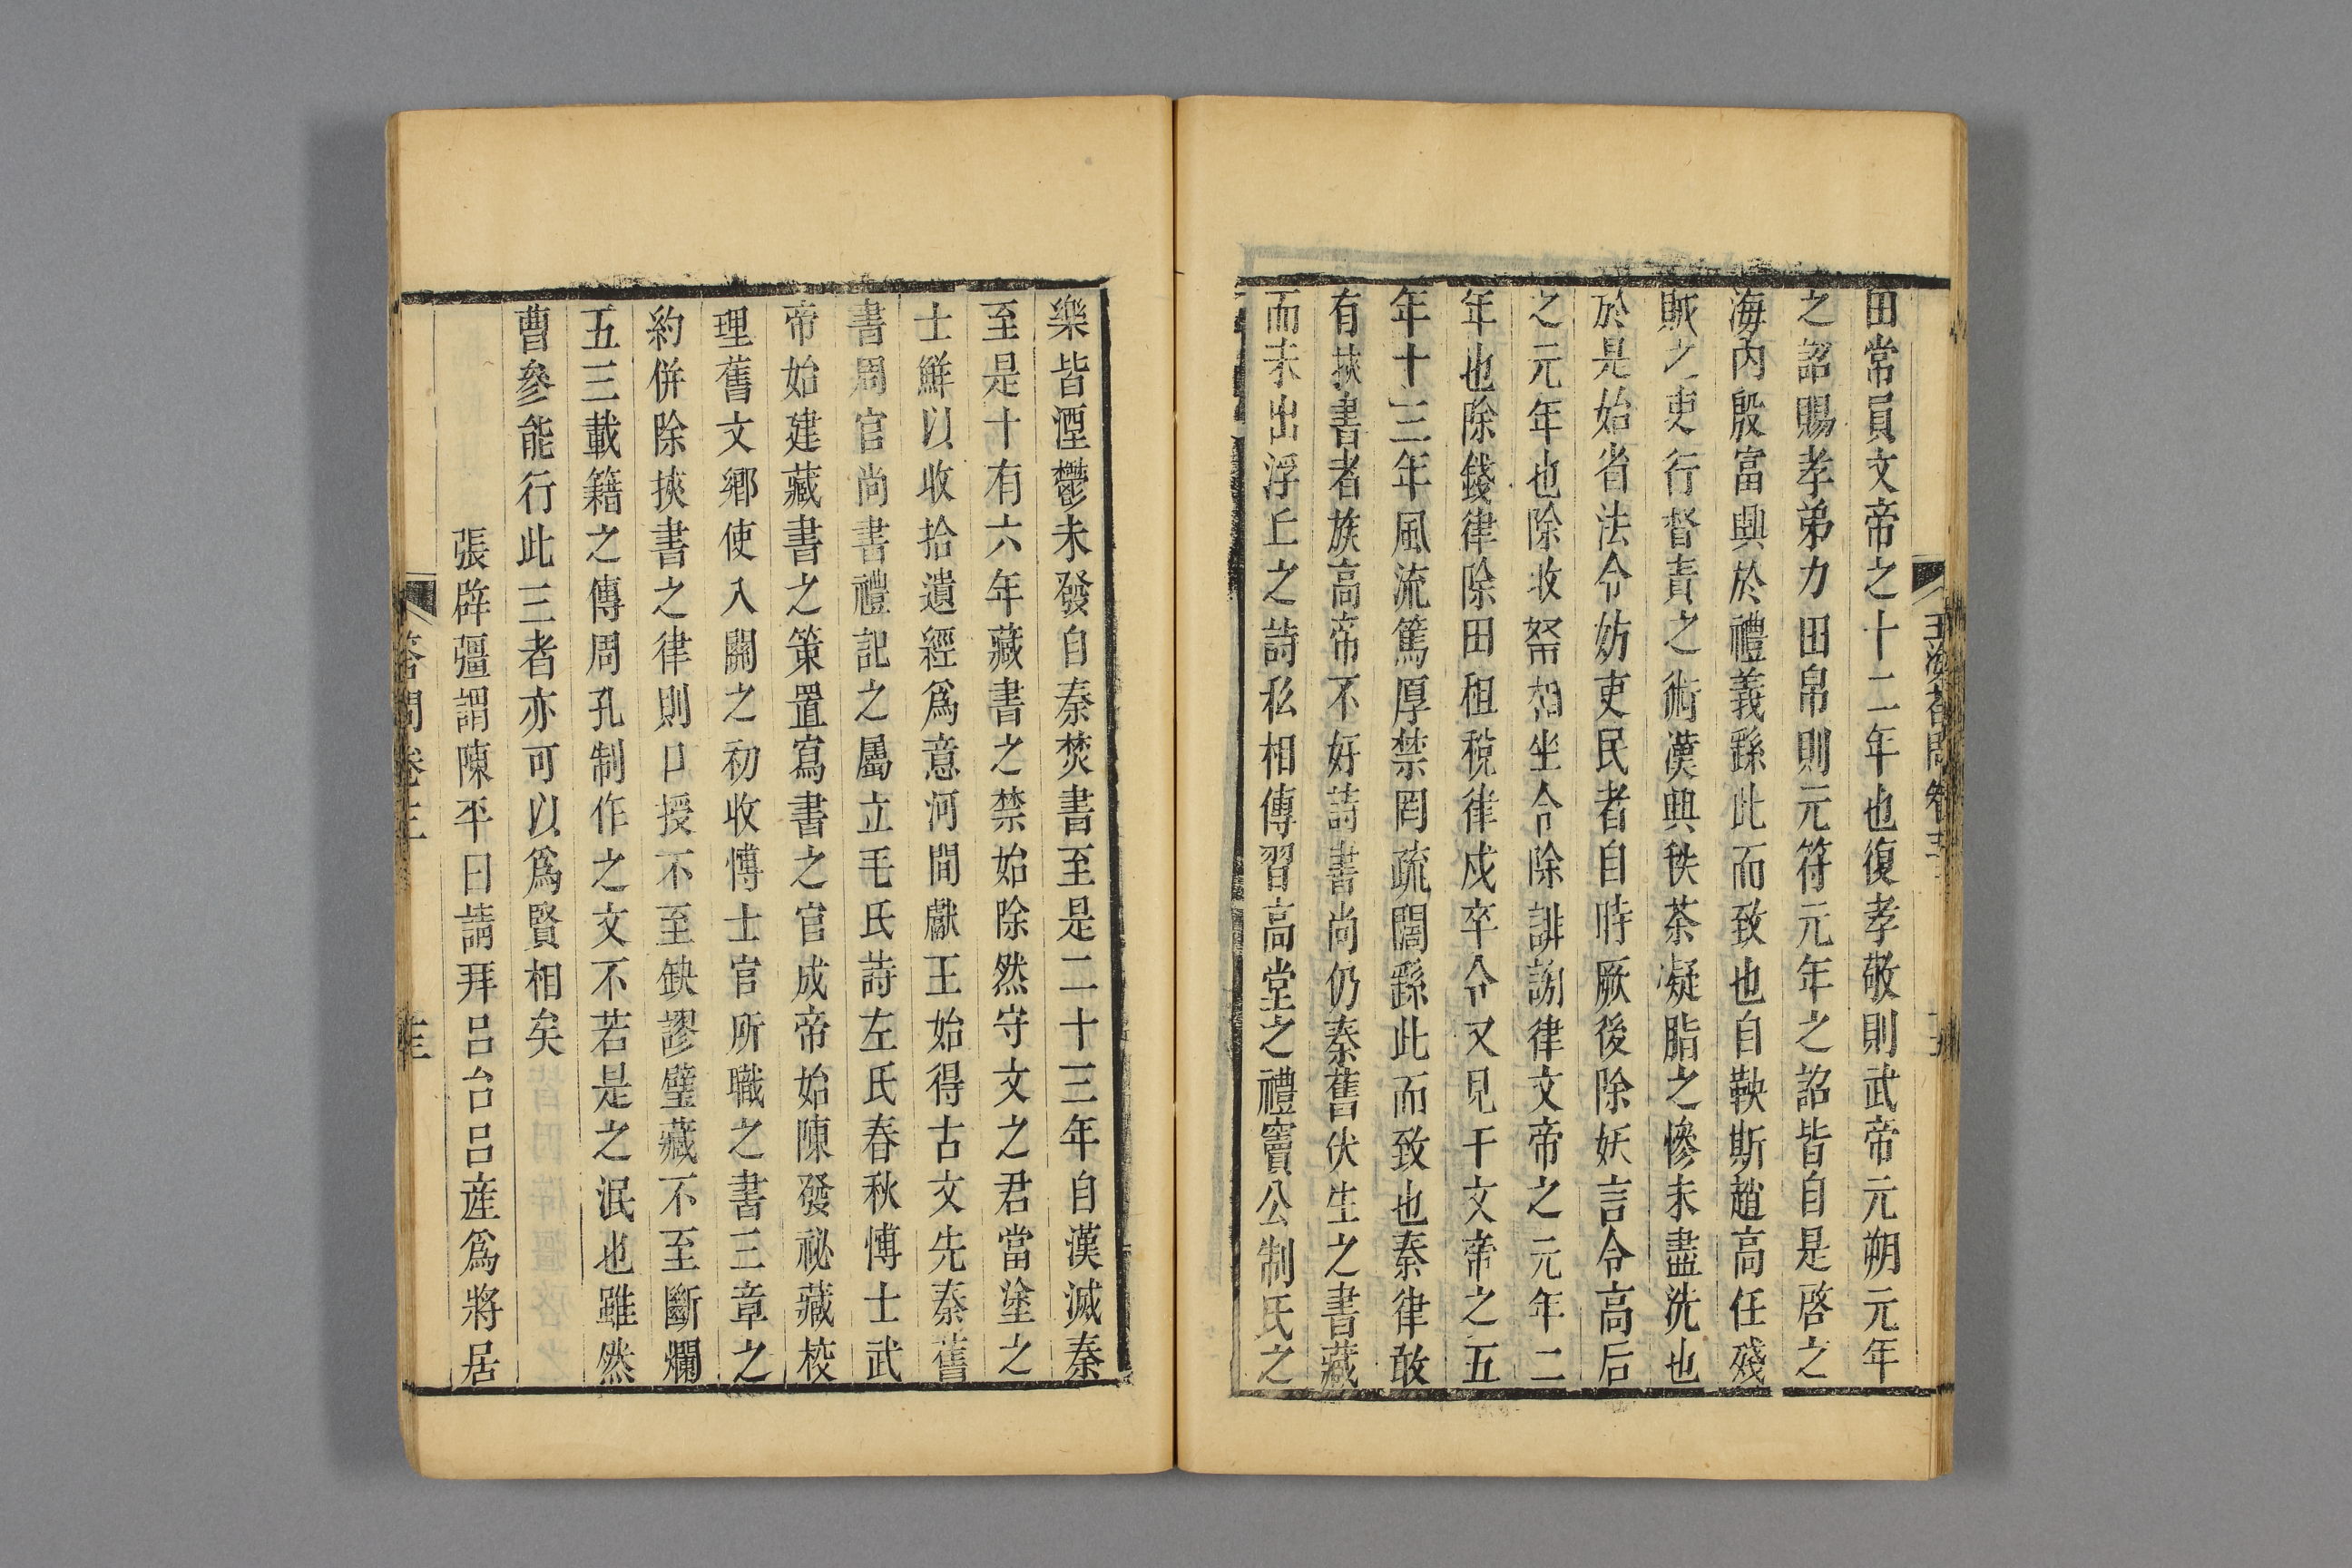 田常員文帝之十二年也復孝敬則武帝元朔元年
之詔賜孝弟力田帛則元符元年之詔皆自是啓之
海內殷富興於禮義繇此而致也自鞅斯趙高任殘
賊之吏行督責之術漢興秩荼凝脂之慘未盡洗也
於是始省法令妨吏民者自時厥後除妖言令高后
之元年也除收帑相坐令除誹謗律文帝之元年二
年也除錢律除田租稅律戍卒令又見于文帝之五
年十三年風流篤厚禁罔疏闊繇此而致也秦律敢
有挾書者族高帝不好詩書尚仍秦舊伏生之書藏
而未出浮丘之詩私相傳習高堂之禮竇公制氏之
樂皆湮鬱未發自秦焚書至是二十三年自漢滅秦
至是十有六年藏書之禁始除然守文之君當塗之
士鮮以收拾遺經為意河間獻王始得古文先秦舊
書周官尚書禮記之屬立毛氏詩左氏春秋博士武
帝始建藏書之策置寫書之官成帝始陳發祕藏校
理舊文鄉使入關之初收博士官所職之書三章之
約併除挾書之律則口授不至缺謬璧藏不至斷爛
五三載籍之傳周孔制作之文不若是之泯也雖然
曹參能行此三者亦可以為賢相矣
張辟彊謂陳平曰請拜呂台呂產為將居
答問卷三